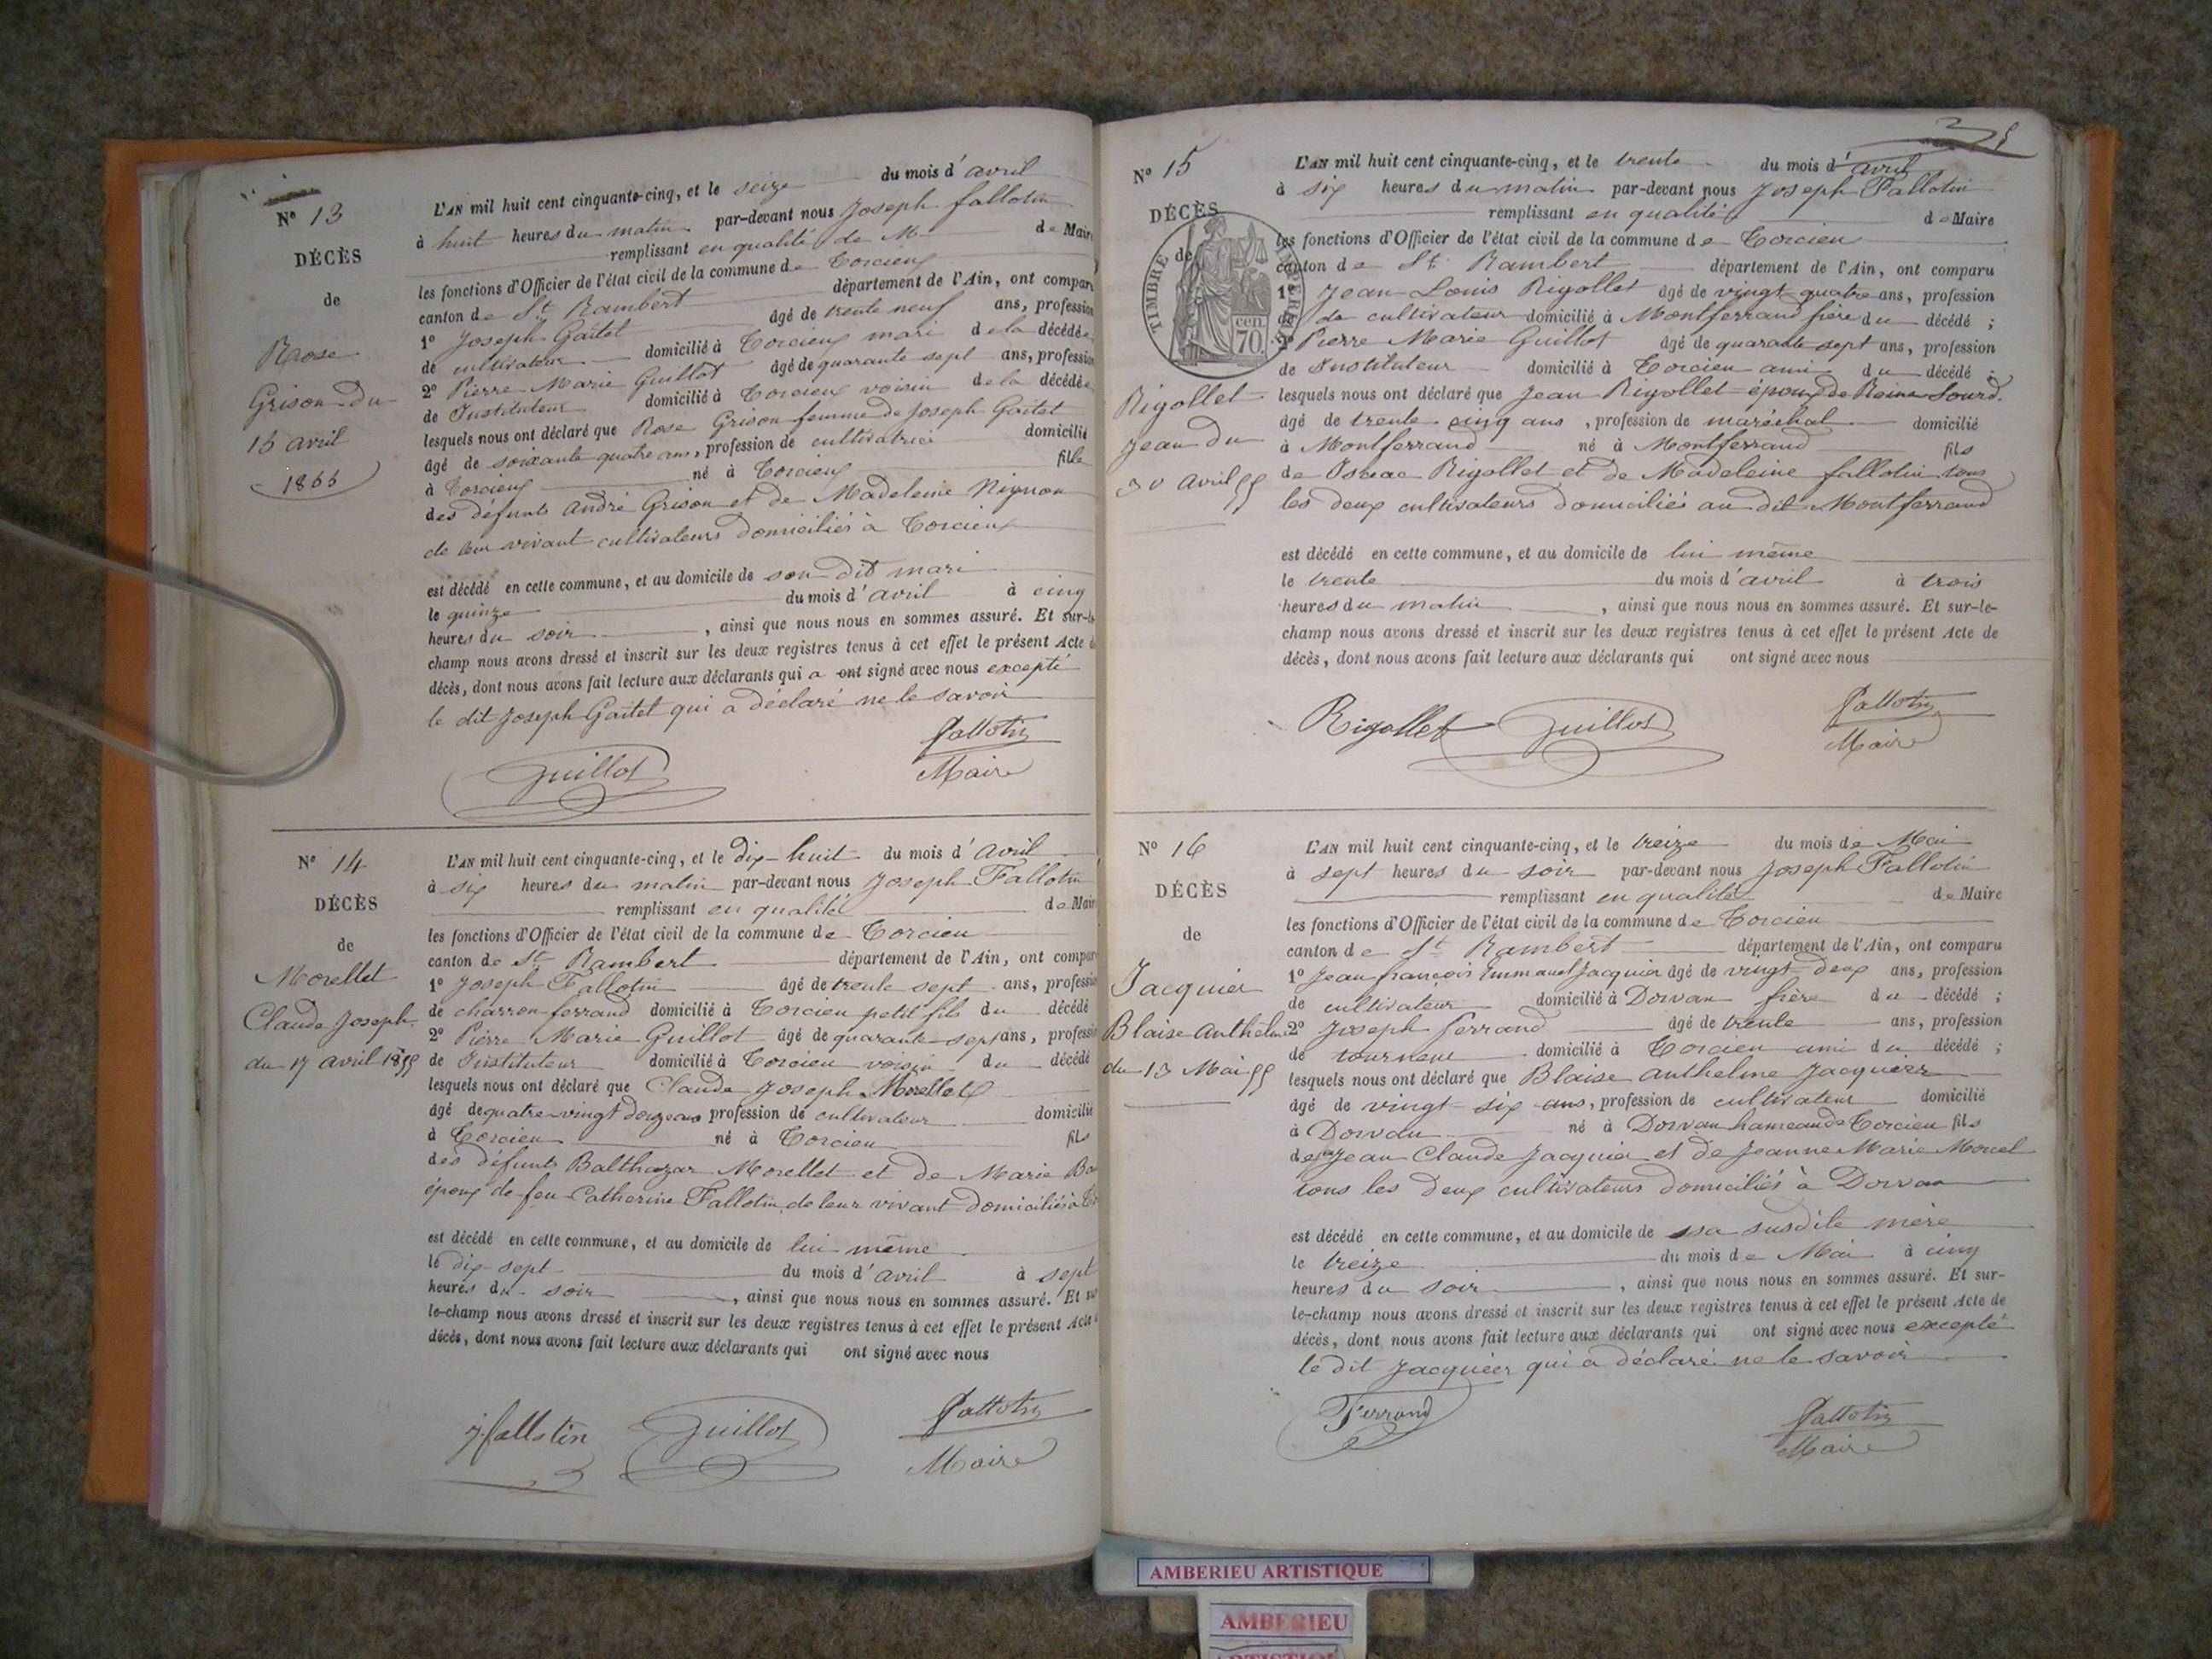 Nº 13
DÉCÈS
de
Rose
Grison du
15 avril
1855
L'AN mil huit cent cinquante-cinq, et le seize du mois d'avril
à huit heures du matin par-devant nous Joseph fallotin
remplissant en qualité de M de Maire
les fonctions d'Officier de l'état civil de la commune de Torcieu
canton de St Rambert département de l'Ain, ont comparu
1º Joseph Gaitet âgé de trente neuf ans, profession
de cultivateur domicilié à Torcieu mari de la décédée
2º Pierre Marie Guillot âgé de quarante sept ans, profession
de Instituteur domicilié à Torcieu voisin de la décédée
lesquels nous ont déclaré que Rose Grison femme de Joseph Gaitet
âgé de soixante quatre ans, profession de cultivatrice domicilié
à Torcieu né à Torcieu fille
des défunts André Grison et de Madeleine Nignon
de leur vivant cultivateurs domiciliés à Torcieu
est décédé en cette commune, et au domicile de son dit mari
le quinze du mois d'avril à cinq
heures du soir, ainsi que nous nous en sommes assuré. Et sur-le
champ nous avons dressé et inscrit sur les deux registres tenus à cet effet le présent Acte d
décès, dont nous avons fait lecture aux déclarants qui a ont signé avec nous excepté
le dit Joseph Gaitet qui a déclaré ne le savoir
Guillot
Fallotin
Maire
Nº 14
DÉCÈS
de
Morellet
Claude Joseph
du 17 avril 1855
L'AN mil huit cent cinquante-cinq, et le dix-huit du mois d'avril
à six heures du matin par-devant nous Joseph Fallotin
remplissant en qualité de Maire
les fonctions d'Officier de l'état civil de la commune de Torcieu
canton de St Rambert département de l'Ain, ont compar
1º Joseph Fallotin âgé de trente sept ans, profession
de charron ferrand domicilié à Torcieu petit fils du décédé
2º Pierre Marie Guillot âgé de quarante-sept ans, profession
de Instituteur domicilié à Torcieu voisin du décédé
lesquels nous ont déclaré que Claude Joseph Morellet
âgé de quatre-vingt douze ans profession de cultivateur domicilié
à Torcieu né à Torcieu fils
des défunts Balthazar Morellet et de Marie
époux de feu Catherine Fallotin de leur vivant domiciliés à
est décédé en cette commune, et au domicile de lui même
le dix-sept du mois d'avril à sept
heures du soir, ainsi que nous nous en sommes assuré. Et sur
le-champ nous avons dressé et inscrit sur les deux registres tenus à cet effet le présent Acte
décès, dont nous avons fait lecture aux déclarants qui ont signé avec nous
J. fallotin
Guillot
Fallotin
Maire
Nº 15
DÉCÈS
de
TIMBRE IMPÉRIAL
70 cen.
Rigollet
Jean du
30 Avril 55
L'AN mil huit cent cinquante-cinq, et le trente du mois d'avril
à six heures du matin par-devant nous Joseph Fallotin
remplissant en qualité de Maire
les fonctions d'Officier de l'état civil de la commune de Torcieu
canton de St Rambert département de l'Ain, ont comparu
1º Jean Louis Rigollet âgé de vingt-quatre ans, profession
de de cultivateur domicilié à Montferrand frère du décédé ;
2º Pierre Marie Guillot âgé de quarante-sept ans, profession
de Instituteur domicilié à Torcieu ami du décédé ;
lesquels nous ont déclaré que Jean Rigollet époux de Reine Sourd.
âgé de trente cinq ans, profession de maréchal domicilié
à Montferrand né à Montferrand fils
de Isaac Rigollet et de Madeleine fallotin tous
les deux cultivateurs domiciliés au dit Montferrand
est décédé en cette commune, et au domicile de lui même
le trente du mois d'avril à trois
heures du matin, ainsi que nous nous en sommes assuré. Et sur-le-
champ nous avons dressé et inscrit sur les deux registres tenus à cet effet le présent Acte de
décès, dont nous avons fait lecture aux déclarants qui ont signé avec nous
Rigollet
Guillot
Fallotin
Maire
Nº 16
DÉCÈS
de
Jacquier
Blaise Anthelme
du 13 Mai 55
L'AN mil huit cent cinquante-cinq, et le treize du mois de Mai
à sept heures du soir par-devant nous Joseph Fallotin
remplissant en qualité de Maire
les fonctions d'Officier de l'état civil de la commune de Torcieu
canton de St Rambert département de l'Ain, ont comparu
1º Jean françois Emmanuel Jacquier âgé de vingt-deux ans, profession
de cultivateur domicilié à Dorvan frère du décédé ;
2º Joseph Ferrand âgé de trente ans, profession
de tourneur domicilié à Torcieu ami du décédé ;
lesquels nous ont déclaré que Blaise Anthelme Jacquier
âgé de vingt-six ans, profession de cultivateur domicilié
à Dorvan né à Dorvan hameau de Torcieu fils
de Jean Claude Jacquier et de Jeanne Marie Morel
tous les deux cultivateurs domiciliés à Dorvan
est décédé en cette commune, et au domicile de sa susdite mère
le treize du mois de Mai à cinq
heures du soir, ainsi que nous nous en sommes assuré. Et sur-
le-champ nous avons dressé et inscrit sur les deux registres tenus à cet effet le présent Acte de
décès, dont nous avons fait lecture aux déclarants qui ont signé avec nous excepté
le dit Jacquier qui a déclaré ne le savoir
Ferrand
Fallotin
Maire
AMBERIEU ARTISTIQUE
AMBERIEU
ARTISTIQUE